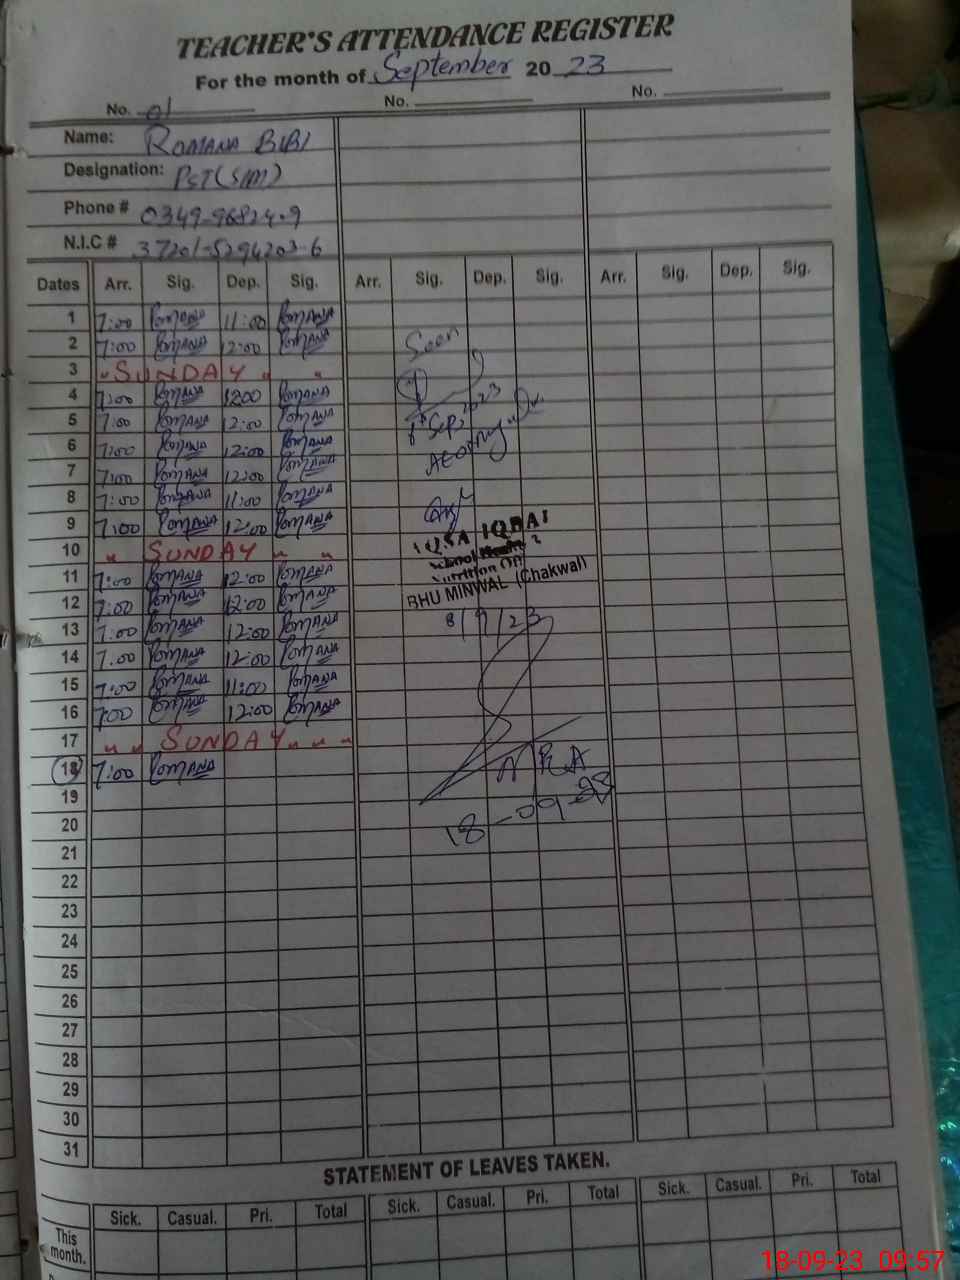 TEACHER'S ATTENDANCE REGISTER
For the month of September 2023
No. 01 No. No.
Name: ROMANA BIBI
Designation: PST (SIM)
Phone # 0349-9682409
N.I.C # 37201-5294203-6
Dates Arr. Sig. Dep. Sig. Arr. Sig. Dep. Sig. Arr. Sig. Dep. Sig.
1 7:00 Romana 11:00 Romana
2 7:00 Romana 12:00 Romana Seen
3 " SUNDAY " "
4 7:00 Romana 12:00 Romana
5 7:00 Romana 12:00 Romana Sep, 2023
6 7:00 Romana 12:00 Romana
7 7:00 Romana 12:00 Romana
8 7:00 Romana 11:00 Romana
9 7:00 Romana 12:00 Romana IQSA IQBAL
10 " SUNDAY " "
11 7:00 Romana 12:00 Romana
BHU MINWAL (Chakwal)
12 7:00 Romana 12:00 Romana 8/9/23
13 7:00 Romana 12:00 Romana
14 7:00 Romana 12:00 Romana
15 7:00 Romana 11:00 Romana
16 7:00 Romana 12:00 Romana
17 " " SUNDAY " " "
18 7:00 Romana
19 18-09-23
20
21
22
23
24
25
26
27
28
29
30
31
STATEMENT OF LEAVES TAKEN.
Sick. Casual. Pri. Total Sick. Casual. Pri. Total Sick. Casual. Pri. Total
This month.
18-09-23 09:57